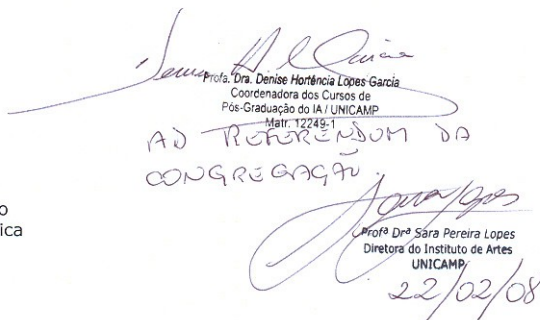 Profa. Dra. Denise Hortência Lopes Garcia
Coordenadora dos Cursos de
Pós-Graduação do IA / UNICAMP
Matr. 12249-1
AD REFERENDUM DA
CONGREGAÇÃO.
o
ica
Profª Drª Sara Pereira Lopes
Diretora do Instituto de Artes
UNICAMP
22/02/08